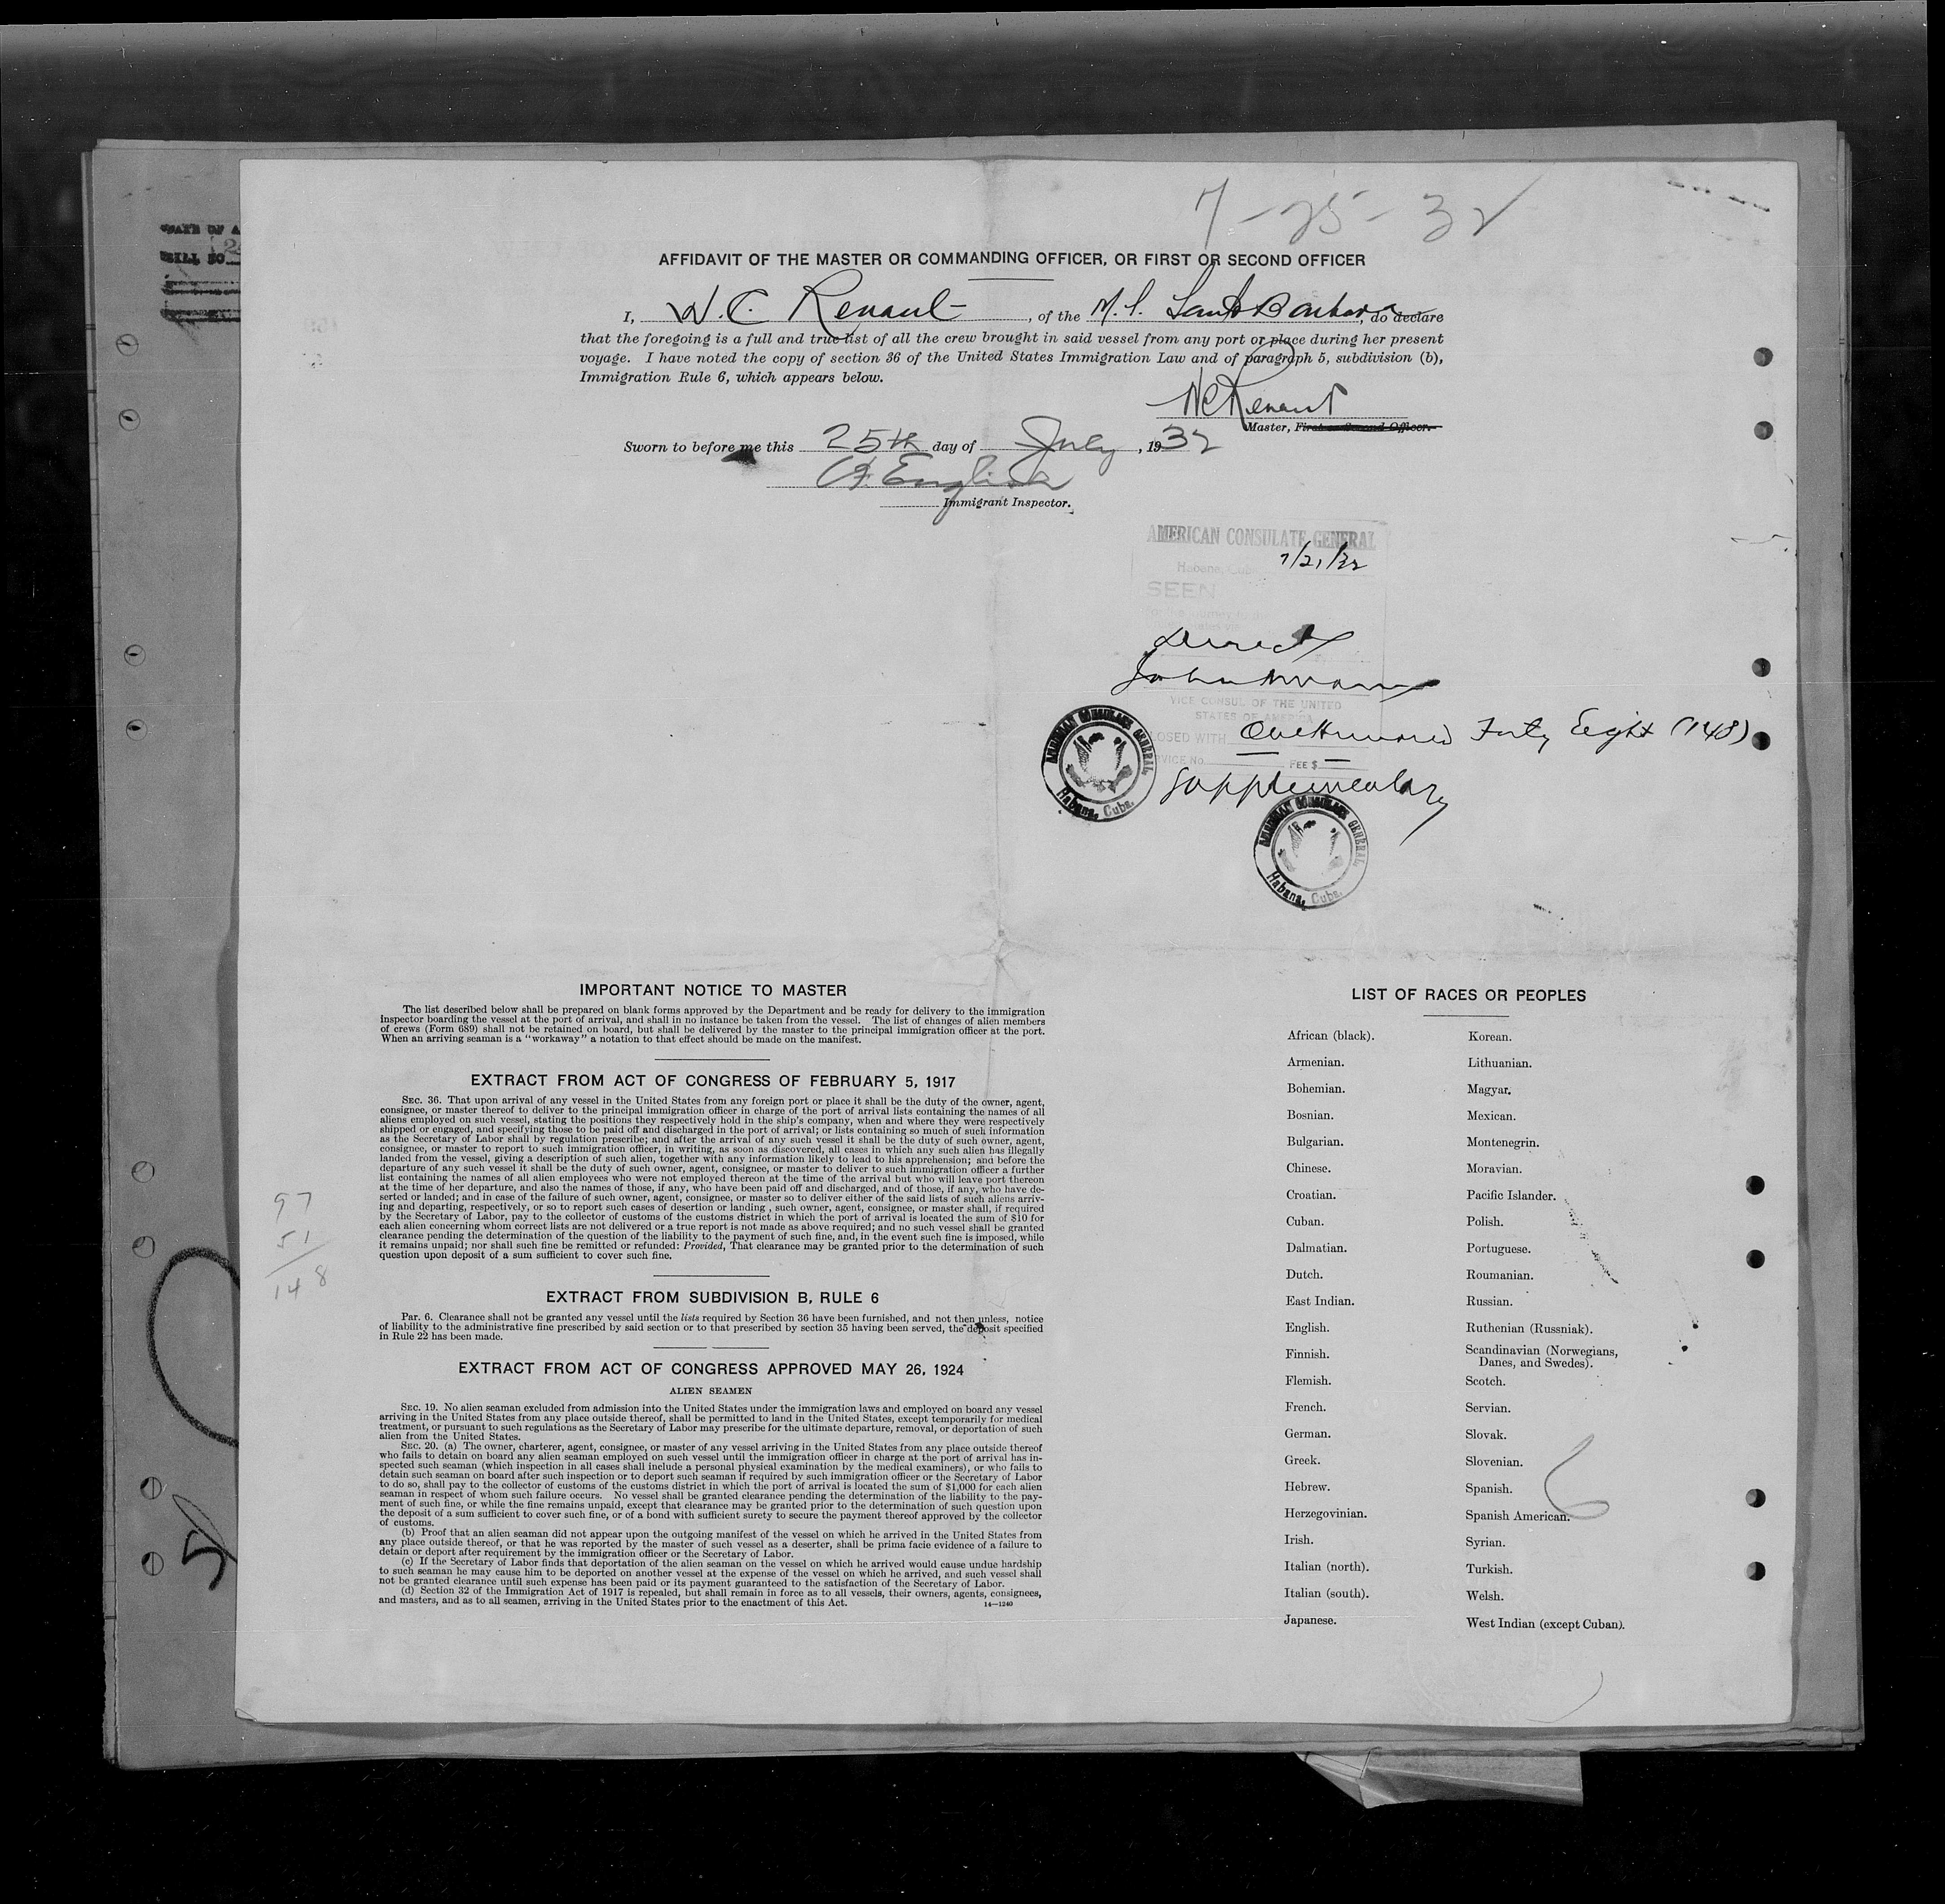 7-25-32
AFFIDAVIT OF THE MASTER OR COMMANDING OFFICER, OR FIRST OR SECOND OFFICER
I, W. C. Renaut, of the M. S. Santa Barbara, do declare
that the foregoing is a full and true list of all the crew brought in said vessel from any port or place during her present
voyage. I have noted the copy of section 36 of the United States Immigration Law and of paragraph 5, subdivision (b),
Immigration Rule 6, which appears below.
WC Renaut
Master, First or Second Officer.
Sworn to before me this 25th day of July, 1932
English
Immigrant Inspector.
AMERICAN CONSULATE GENERAL
7/21/32
Habana, Cuba
SEEN
Direct
John
VICE CONSUL OF THE UNITED
STATES OF AMERICA
CLOSED WITH One Hundred Forty Eight (148)
SERVICE No. — FEE $ —
Supplementary
AMERICAN CONSULATE GENERAL
Habana, Cuba.
AMERICAN CONSULATE GENERAL
Habana, Cuba.
IMPORTANT NOTICE TO MASTER
The list described below shall be prepared on blank forms approved by the Department and be ready for delivery to the immigration
inspector boarding the vessel at the port of arrival, and shall in no instance be taken from the vessel. The list of changes of alien members
of crews (Form 689) shall not be retained on board, but shall be delivered by the master to the principal immigration officer at the port.
When an arriving seaman is a "workaway" a notation to that effect should be made on the manifest.
EXTRACT FROM ACT OF CONGRESS OF FEBRUARY 5, 1917
SEC. 36. That upon arrival of any vessel in the United States from any foreign port or place it shall be the duty of the owner, agent,
consignee, or master thereof to deliver to the principal immigration officer in charge of the port of arrival lists containing the names of all
aliens employed on such vessel, stating the positions they respectively hold in the ship's company, when and where they were respectively
shipped or engaged, and specifying those to be paid off and discharged in the port of arrival; or lists containing so much of such information
as the Secretary of Labor shall by regulation prescribe; and after the arrival of any such vessel it shall be the duty of such owner, agent,
consignee, or master to report to such immigration officer, in writing, as soon as discovered, all cases in which any such alien has illegally
landed from the vessel, giving a description of such alien, together with any information likely to lead to his apprehension; and before the
departure of any such vessel it shall be the duty of such owner, agent, consignee, or master to deliver to such immigration officer a further
list containing the names of all alien employees who were not employed thereon at the time of the arrival but who will leave port thereon
at the time of her departure, and also the names of those, if any, who have been paid off and discharged, and of those, if any, who have de-
serted or landed; and in case of the failure of such owner, agent, consignee, or master so to deliver either of the said lists of such aliens arriv-
ing and departing, respectively, or so to report such cases of desertion or landing , such owner, agent, consignee, or master shall, if required
by the Secretary of Labor, pay to the collector of customs of the customs district in which the port of arrival is located the sum of $10 for
each alien concerning whom correct lists are not delivered or a true report is not made as above required; and no such vessel shall be granted
clearance pending the determination of the question of the liability to the payment of such fine, and, in the event such fine is imposed, while
it remains unpaid; nor shall such fine be remitted or refunded: Provided, That clearance may be granted prior to the determination of such
question upon deposit of a sum sufficient to cover such fine.
97
51
148
EXTRACT FROM SUBDIVISION B, RULE 6
Par. 6. Clearance shall not be granted any vessel until the lists required by Section 36 have been furnished, and not then unless, notice
of liability to the administrative fine prescribed by said section or to that prescribed by section 35 having been served, the deposit specified
in Rule 22 has been made.
EXTRACT FROM ACT OF CONGRESS APPROVED MAY 26, 1924
ALIEN SEAMEN
SEC. 19. No alien seaman excluded from admission into the United States under the immigration laws and employed on board any vessel
arriving in the United States from any place outside thereof, shall be permitted to land in the United States, except temporarily for medical
treatment, or pursuant to such regulations as the Secretary of Labor may prescribe for the ultimate departure, removal, or deportation of such
alien from the United States.
SEC. 20. (a) The owner, charterer, agent, consignee, or master of any vessel arriving in the United States from any place outside thereof
who fails to detain on board any alien seaman employed on such vessel until the immigration officer in charge at the port of arrival has in-
spected such seaman (which inspection in all cases shall include a personal physical examination by the medical examiners), or who fails to
detain such seaman on board after such inspection or to deport such seaman if required by such immigration officer or the Secretary of Labor
to do so, shall pay to the collector of customs of the customs district in which the port of arrival is located the sum of $1,000 for each alien
seaman in respect of whom such failure occurs. No vessel shall be granted clearance pending the determination of the liability to the pay-
ment of such fine, or while the fine remains unpaid, except that clearance may be granted prior to the determination of such question upon
the deposit of a sum sufficient to cover such fine, or of a bond with sufficient surety to secure the payment thereof approved by the collector
of customs.
(b) Proof that an alien seaman did not appear upon the outgoing manifest of the vessel on which he arrived in the United States from
any place outside thereof, or that he was reported by the master of such vessel as a deserter, shall be prima facie evidence of a failure to
detain or deport after requirement by the immigration officer or the Secretary of Labor.
(c) If the Secretary of Labor finds that deportation of the alien seaman on the vessel on which he arrived would cause undue hardship
to such seaman he may cause him to be deported on another vessel at the expense of the vessel on which he arrived, and such vessel shall
not be granted clearance until such expense has been paid or its payment guaranteed to the satisfaction of the Secretary of Labor.
(d) Section 32 of the Immigration Act of 1917 is repealed, but shall remain in force as to all vessels, their owners, agents, consignees,
and masters, and as to all seamen, arriving in the United States prior to the enactment of this Act.
14—1240
LIST OF RACES OR PEOPLES
African (black).
Armenian.
Bohemian.
Bosnian.
Bulgarian.
Chinese.
Croatian.
Cuban.
Dalmatian.
Dutch.
East Indian.
English.
Finnish.
Flemish.
French.
German.
Greek.
Hebrew.
Herzegovinian.
Irish.
Italian (north).
Italian (south).
Japanese.
Korean.
Lithuanian.
Magyar.
Mexican.
Montenegrin.
Moravian.
Pacific Islander.
Polish.
Portuguese.
Roumanian.
Russian.
Ruthenian (Russniak).
Scandinavian (Norwegians,
Danes, and Swedes).
Scotch.
Servian.
Slovak.
Slovenian.
Spanish.
Spanish American.
Syrian.
Turkish.
Welsh.
West Indian (except Cuban).
6